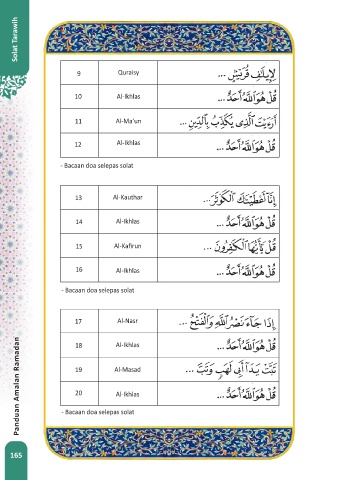 Solat Tarawih
9 Quraisy لِإِيلَٰفِ قُرَيْشٍ ...
10 Al-Ikhlas قُلْ هُوَ ٱللَّهُ أَحَدٌ ...
11 Al-Ma'un أَرَءَيْتَ ٱلَّذِى يُكَذِّبُ بِٱلدِّينِ ...
12 Al-Ikhlas قُلْ هُوَ ٱللَّهُ أَحَدٌ ...
- Bacaan doa selepas solat
13 Al-Kauthar إِنَّآ أَعْطَيْنَٰكَ ٱلْكَوْثَرَ ...
14 Al-Ikhlas قُلْ هُوَ ٱللَّهُ أَحَدٌ ...
15 Al-Kafirun قُلْ يَٰٓأَيُّهَا ٱلْكَٰفِرُونَ ...
16 Al-Ikhlas قُلْ هُوَ ٱللَّهُ أَحَدٌ ...
- Bacaan doa selepas solat
17 Al-Nasr إِذَا جَآءَ نَصْرُ ٱللَّهِ وَٱلْفَتْحُ ...
18 Al-Ikhlas قُلْ هُوَ ٱللَّهُ أَحَدٌ ...
19 Al-Masad تَبَّتْ يَدَآ أَبِى لَهَبٍ وَتَبَّ ...
20 Al-Ikhlas قُلْ هُوَ ٱللَّهُ أَحَدٌ ...
- Bacaan doa selepas solat
Panduan Amalan Ramadan
165